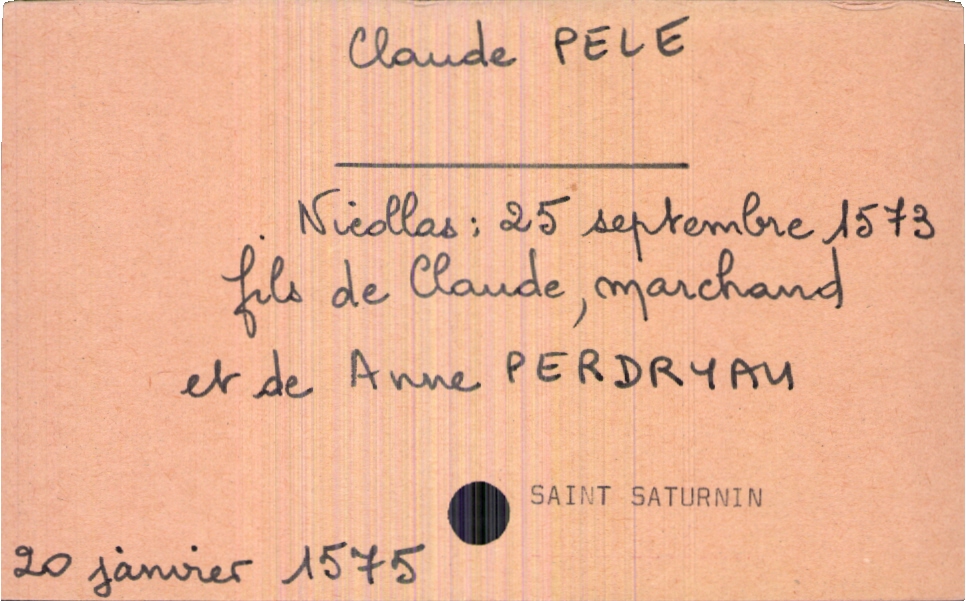 Claude PELE
Nicollas : 25 septembre 1573
fils de Claude, marchand
et de Anne PERDRYAU
SAINT SATURNIN
20 janvier 1575